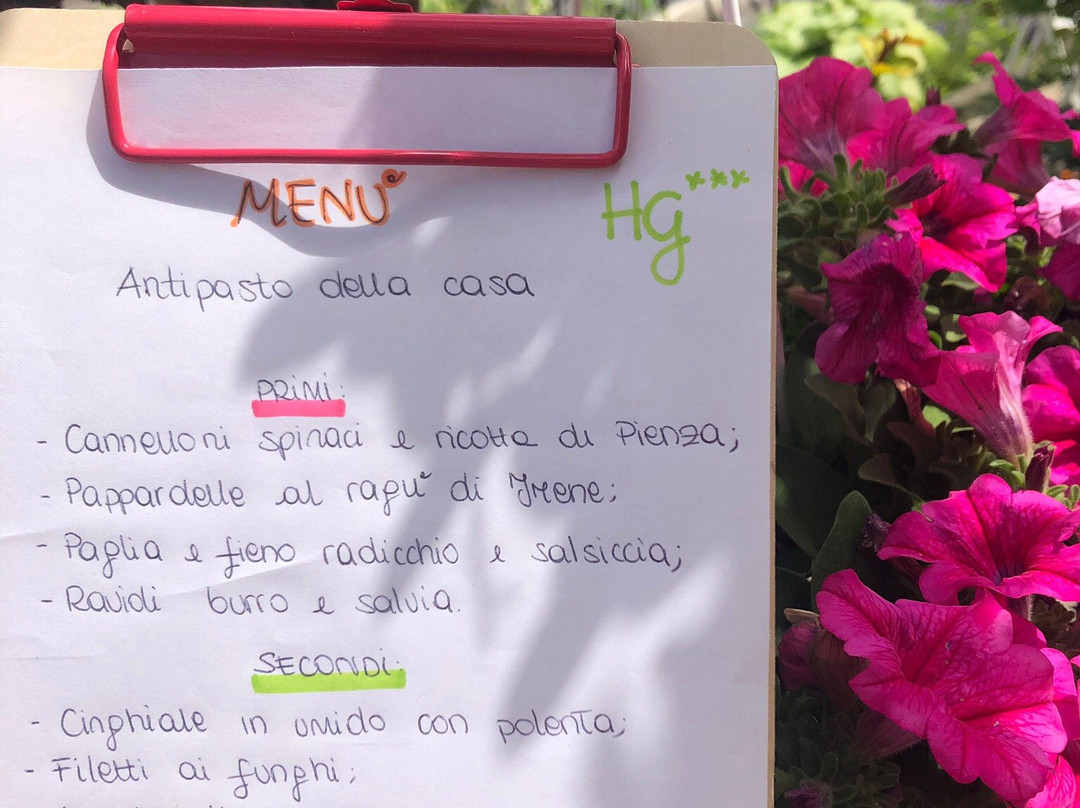 MENU'
HG***
Antipasto della casa
PRIMI:
- Cannelloni spinaci e ricotta di Pienza;
- Pappardelle al ragu' di Irene;
- Paglia e fieno radicchio e salsiccia;
- Ravioli burro e salvia.
SECONDI:
- Cinghiale in umido con polenta;
- Filetti ai funghi;